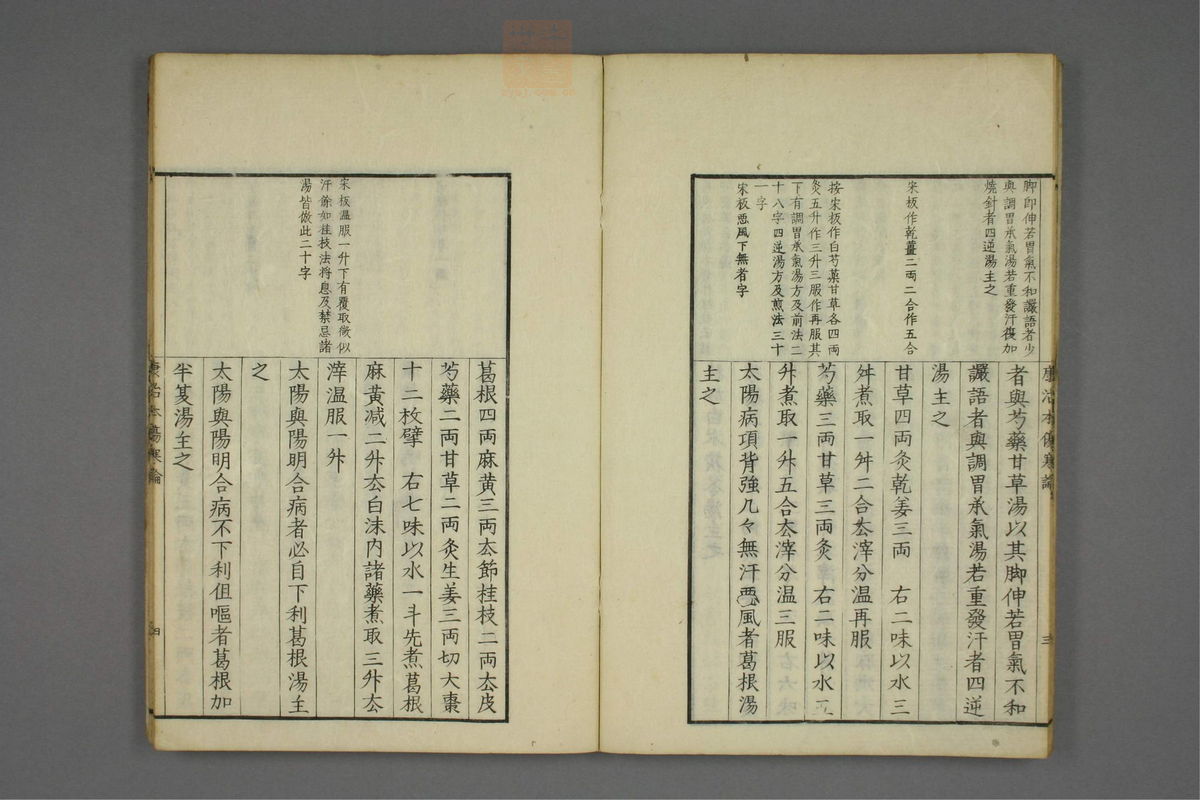 脚即伸若胃氣不和讝語者少
與調胃承氣湯若重發汗復加
燒針者四逆湯主之
宋板作乾薑二両二合作五合
按宋板作白芍藥甘草各四両
灸五升作三升三服作再服其
下有調胃承氣湯方及前法二
十八字四逆湯方及煎法三十
一字
宋板悪風下無者字
者與芍藥甘草湯以其脚伸若胃氣不和
讝語者與調胃承氣湯若重發汗者四逆
湯主之
甘草四両灸乾姜三両　右二味以水三
舛煮取一舛二合厺滓分温再服
芍藥三両甘草三両灸　右二味以水五
升煮取一升五合厺滓分温三服
太陽病項背強几々無汗悪風者葛根湯
主之
康治本傷寒論
三
宋板温服一升下有覆取微似
汗餘如桂枝法将息及禁忌諸
湯皆倣此二十字
葛根四両麻黄三両厺節桂枝二両厺皮
芍藥二両甘草二両灸生姜三両切大棗
十二枚擘　右七味以水一斗先煮葛根
麻黄减二升厺白沫内諸藥煮取三升厺
滓温服一升
太陽與陽明合病者必自下利葛根湯主
之
太陽與陽明合病不下利伹嘔者葛根加
半夏湯主之
康治本傷寒論
四